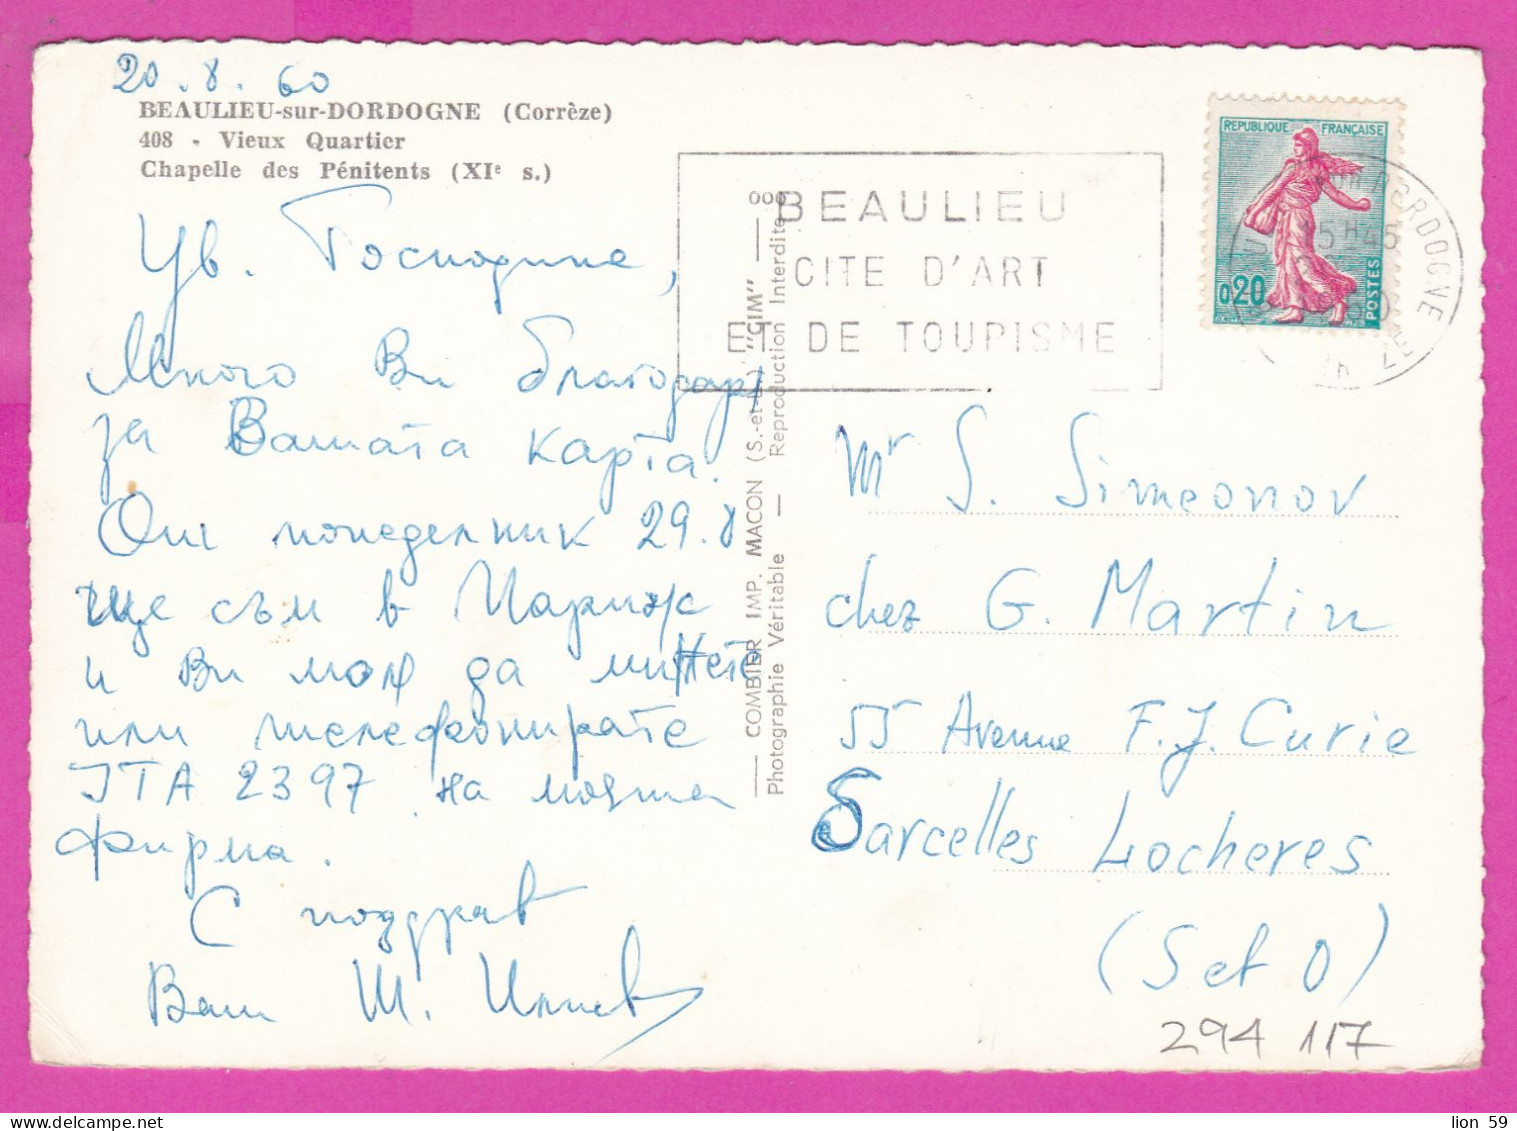 20.8.60
BEAULIEU-sur-DORDOGNE (Corrèze)
408 - Vieux Quartier
Chapelle des Pénitents (XIe s.)
Ув. Господине,
Много Ви благодаря
за Вашата карта.
От понеделник 29.8
ще съм в Париж
и Ви моля да минете
или телефонирате
ITA 2397 на моята
фирма.
С поздрав
Ваш
COMBIER IMP. MACON (S.-et-L.) "CIM"
Photographie Véritable — Reproduction Interdite
BEAULIEU
CITE D'ART
ET DE TOURISME
REPUBLIQUE FRANÇAISE
0,20
POSTES
15H45
DORDOGNE
Mr S. Simeonov
chez G. Martin
55 Avenue F.J. Curie
Sarcelles Locheres
(S et O)
294 117
lion 59